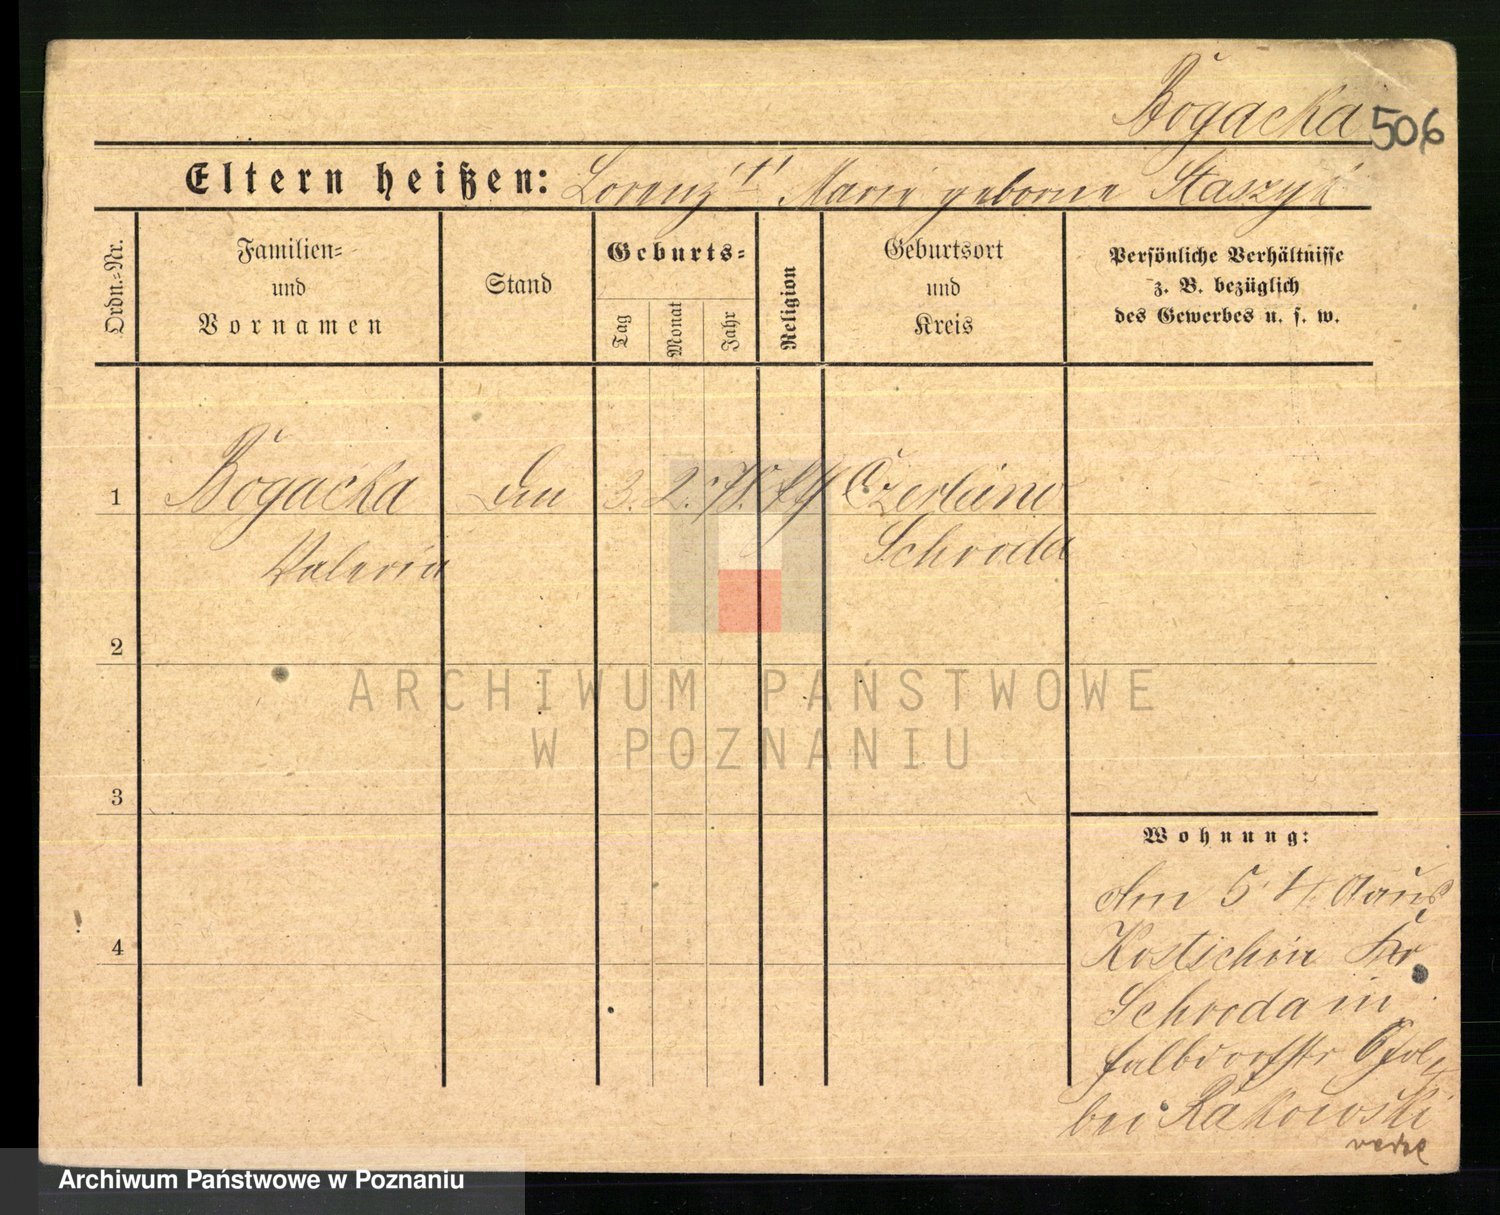 Bogacka 506
Eltern heißen: Lorenz "†" Marie geborne Staszyk
Ordn.-Nr.
Familien-
und
Vornamen
Stand
Geburts-
Tag
Monat
Jahr
Religion
Geburtsort
und
Kreis
Persönliche Verhältnisse
z. B. bezüglich
des Gewerbes u. s. w.
1 Bogacka 3. 2. 78. Czerleino
Valeria Schroda
2
3
4
Wohnung:
Am 5/4 aus
Kostschin Kr
Schroda in
bei Rakowski
ARCHIWUM PAŃSTWOWE
W POZNANIU
Archiwum Państwowe w Poznaniu